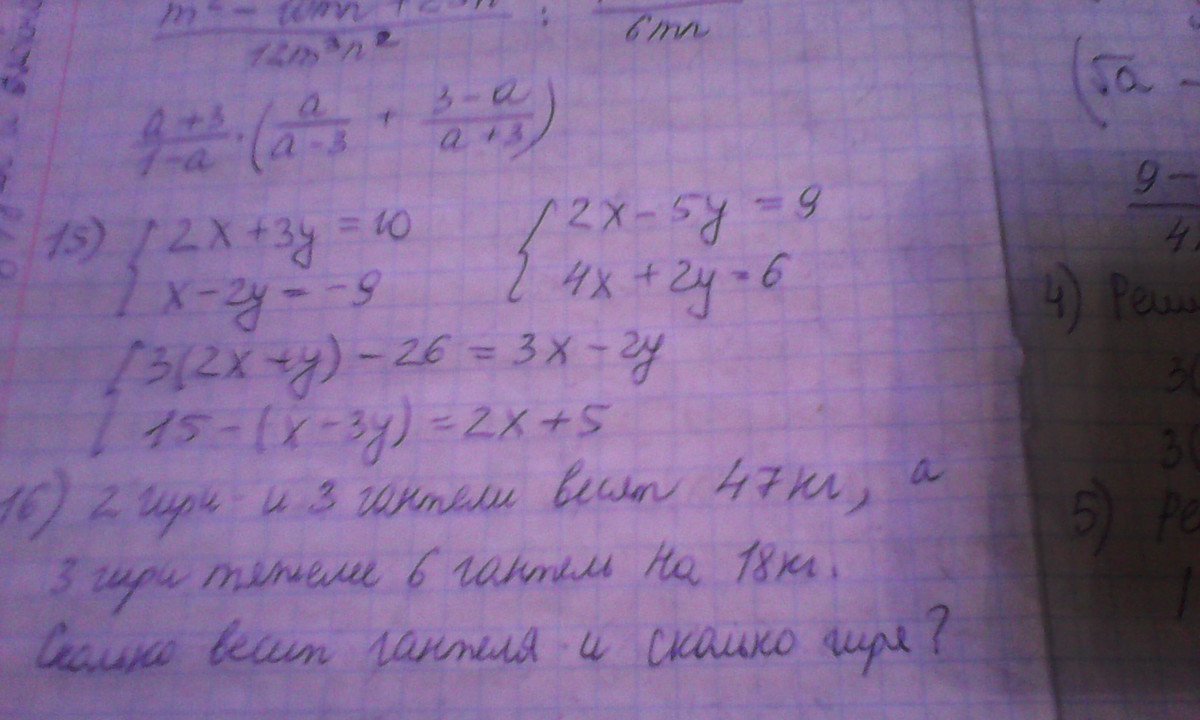 12m³n² 6mn
(a+3)/(1-a) · (a/(a-3) + (3-a)/(a+3))
(√a -
9-
15) { 2x+3y=10 { 2x-5y=9
x-2y=-9 4x+2y=6
{ 3(2x+y)-26=3x-2y
15-(x-3y)=2x+5
16) 2 гири и 3 гантели весят 47кг, а
3 гири тяжелее 6 гантель на 18кг.
Сколько весит гантеля и сколько гиря?
4)
3(
3(
5) Ре